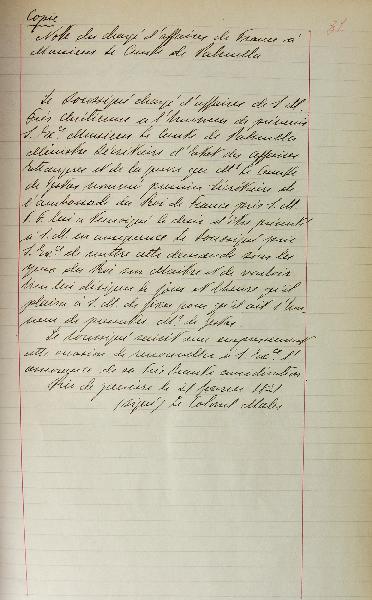 Copie
31
Note du chargé d'affaires de France à
Monsieur le Comte de Palmella
Le Soussigné chargé d'affaires de S. M.
Très chrétienne a l'honneur de prévenir
S. Exce. Monsieur le Comte de Palmella
Ministre Secrétaire d'état des affaires
étrangères et de la que Mr. le Comte
de nommé premier Secrétaire de
l'ambassade du Roi de France près S. M.
lui a témoigné le désir d'être présenté
à S. M. en conséquence le Soussigné prie
S. Exce. de mettre cette demande sous les
yeux du Roi son Maître et de vouloir
bien lui désigner le jour et l'heure qu'il
plaira à S. M. de fixer pour qu'il ait l'hon-
neur de présenter Mr. de
Le Soussigné saisit avec empressement
cette occasion de renouveller à S. Exce. l'
assurance de sa très haute considération
Rio de Janeiro le 21 février 1821
(signé) Le Colonel Maler